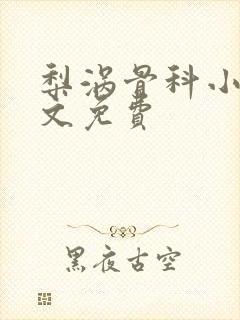 梨涡骨科小
文免费
黑夜古空